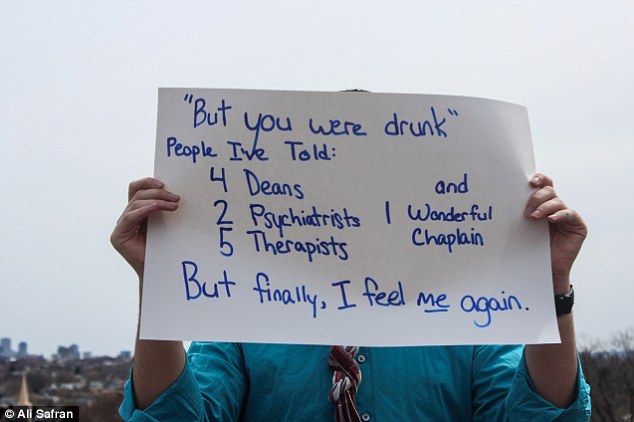 "But you were drunk"
People I've Told:
4 Deans and
2 Psychiatrists 1 Wonderful
5 Therapists Chaplain
But finally, I feel me again.
© Ali Safran